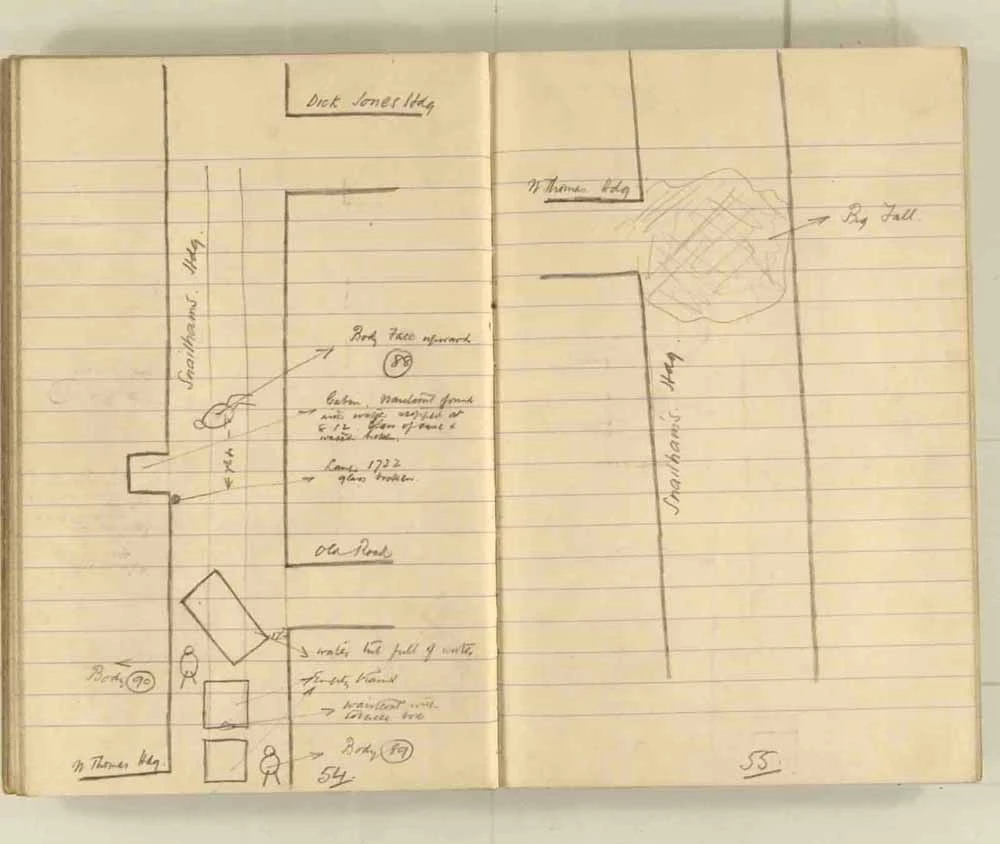 Dick Jones Hdg
Snailham's. Hdg.
Body Face upward
88
Cabin. Waistcoat found
with watch stopped at
8.12. Glass of
watch broken.
Lamp 1722
glass broken.
Old Road
water full of water
Body 90
Empty Tram
waistcoat with
tobacco box
Body 89
W Thomas Hdg.
54.
W Thomas Hdg
Big Fall.
Snailham's. Hdg.
55.